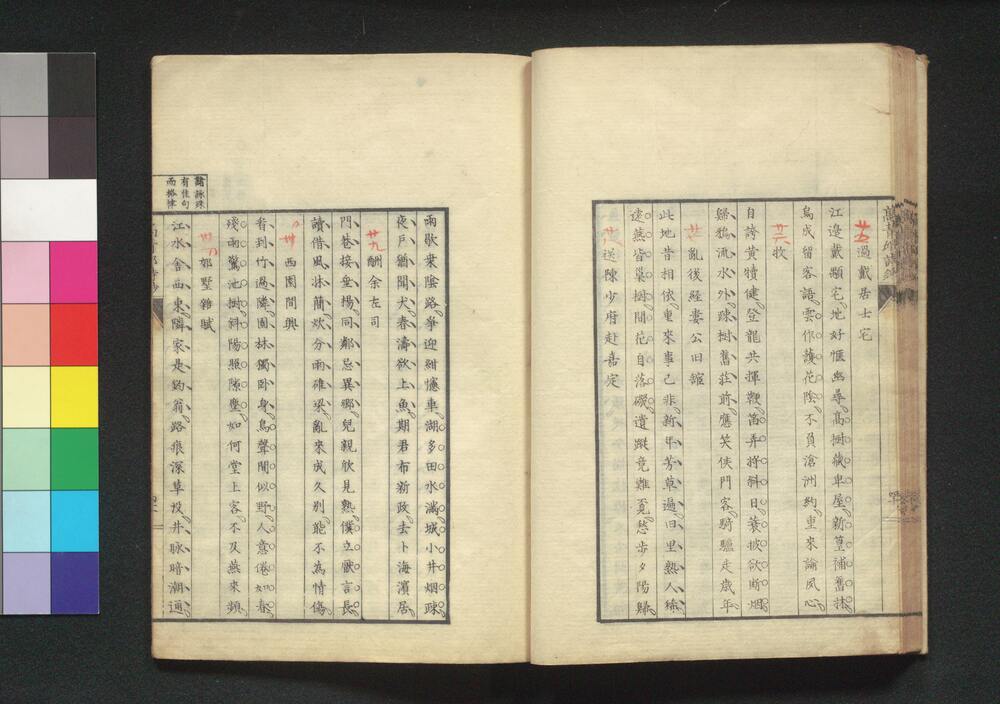 廿五 過戴居士宅
江邊戴顒宅地好愜幽尋高樹藏卑屋新篁補舊林
鳥成留客語雲作護花陰不負滄洲約重來論夙心
廿六 牧
自誇黃犢健登龍共揮鞭笛弄將斜日蓑披欲斷烟
歸鴉流水外疎樹舊莊前應笑侯門客騎驢走歲年
廿七 亂後經妻公旧館
此地昔相依重來事已非新年芳草遍旧里熟人稀
遠燕皆巢樹間花自落磯遺蹤竟難覓愁步夕陽歸
廿八 送陳少府赴嘉定
雨歇菜陰路爭迎紺幰車湖多田水滿城小井烟疎
夜戶猶聞犬春濤欲上魚期君布新政去卜海濱居
廿九 酬余左司
門巷接垂楊同鄰忌異鄉兒親欣見熟僕立厭言長
讀借風牀簡炊分雨碓梁亂來成久別能不為情傷
卅 西園閒興
看到竹過隣園林獨臥身鳥聲閒似野人意倦如春
殘雨鷺池樹斜陽照隙塵如何堂上客不及燕來頻
卅一 郊墅雜賦
江水舍西東隣家是釣翁路痕深草投井脉暗潮通
諸詠殊
有佳句
而格律